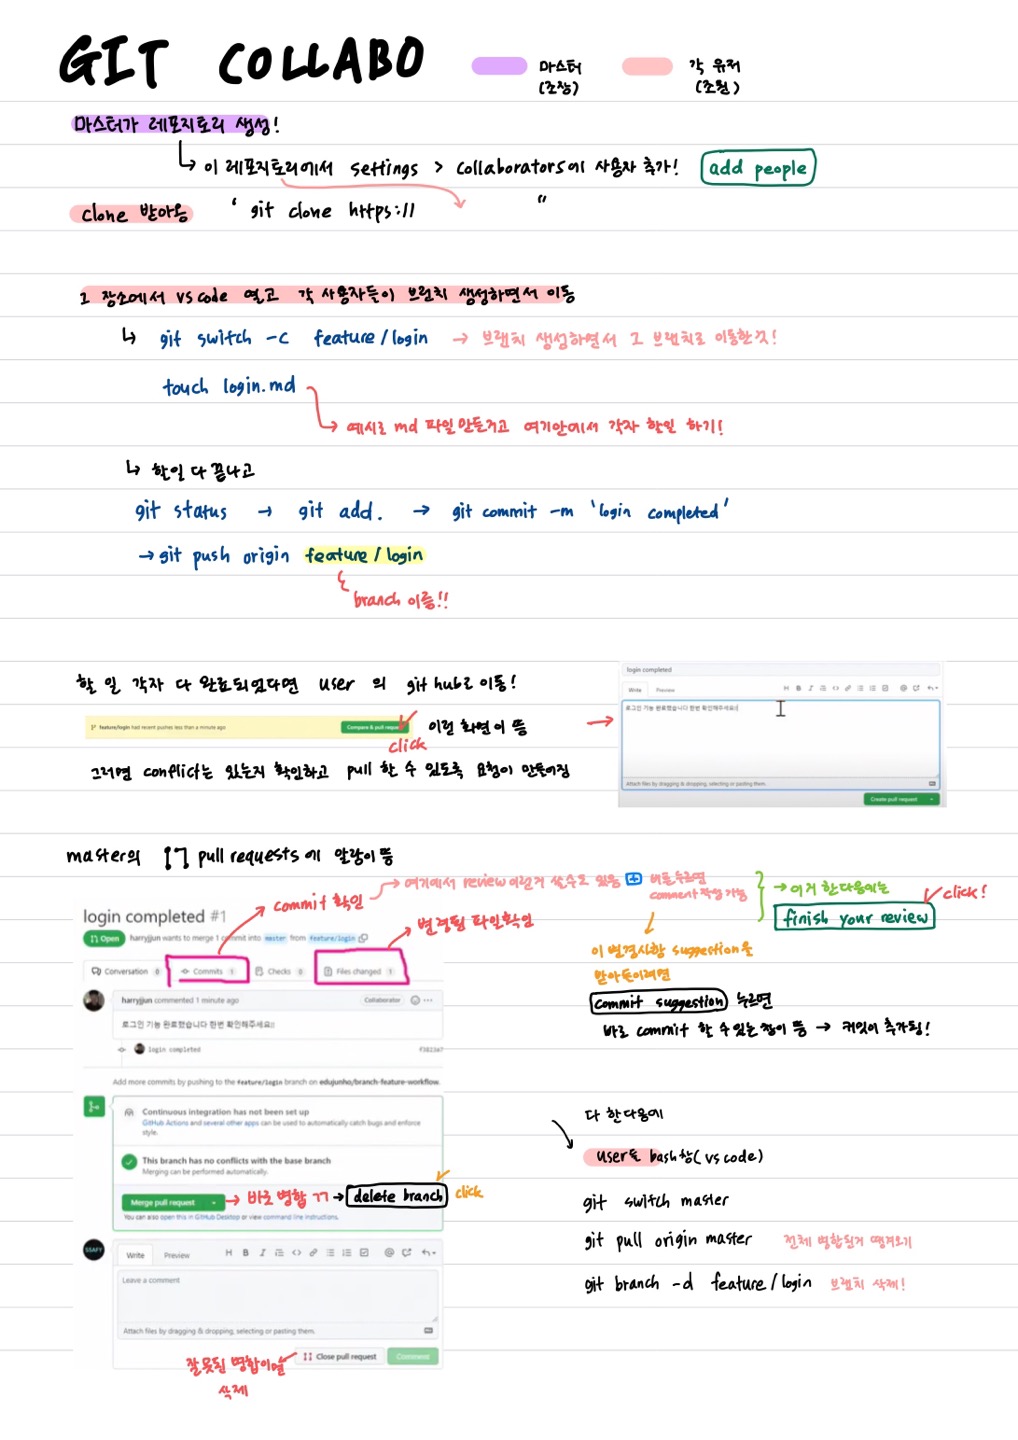 GIT COLLABO
마스터
(조장)
각 유저
(조원)
마스터가 레포지토리 생성!
이 레포지토리에서 settings > collaborators에 사용자 추가! add people
clone 받아옴 ' git clone https:// "
그 장소에서 vs code 열고 각 사용자들이 브런치 생성하면서 이동
git switch -c feature/login → 브랜치 생성하면서 그 브랜치로 이동한것!
touch login.md
예시로 md 파일만든거고 여기안에서 각자 할일 하기!
할일 다 끝나고
git status → git add. → git commit -m 'login completed'
→ git push origin feature/login
branch 이름!!
할 일 각자 다 완료되었다면 user 의 github로 이동!
feature/login had recent pushes less than a minute ago Compare & pull request
click
이런 화면이 뜸
그러면 conflict는 있는지 확인하고 pull 할 수 있도록 요청이 만들어짐
login completed
Write Preview
로그인 기능 완료했습니다 한번 확인해주세요!!
Attach files by dragging & dropping, selecting or pasting them.
Create pull request
master의 pull requests에 알람이 뜸
commit 확인 → 여기에서 review 이런거 쓸수도 있음
버튼누르면
comment 작성 가능
→ 이거 한다음에는
click!
finish your review
변경된 파일확인
이 변경사항 suggestion을
받아들이려면
commit suggestion 누르면
바로 commit 할 수 있는 창이 뜸 → 커밋이 추가됨!
login completed #1
Open harryjjun wants to merge 1 commit into master from feature/login
Conversation 0 Commits 1 Checks 0 Files changed 1
harryjjun commented 1 minute ago Collaborator
로그인 기능 완료했습니다 한번 확인해주세요!!
login completed f3823a7
Add more commits by pushing to the feature/login branch on edujunho/branch-feature-workflow.
Continuous integration has not been set up
GitHub Actions and several other apps can be used to automatically catch bugs and enforce
style.
This branch has no conflicts with the base branch
Merging can be performed automatically.
Merge pull request → 바로 병합 ㄱㄱ → delete branch click
You can also open this in GitHub Desktop or view command line instructions.
SSAFY
Write Preview
Leave a comment
Attach files by dragging & dropping, selecting or pasting them.
Close pull request Comment
잘못된 병합이면
삭제
다 한다음에
user들 bash창(vs code)
git switch master
git pull origin master 전체 병합된거 땡겨오기
git branch -d feature/login 브랜치 삭제!